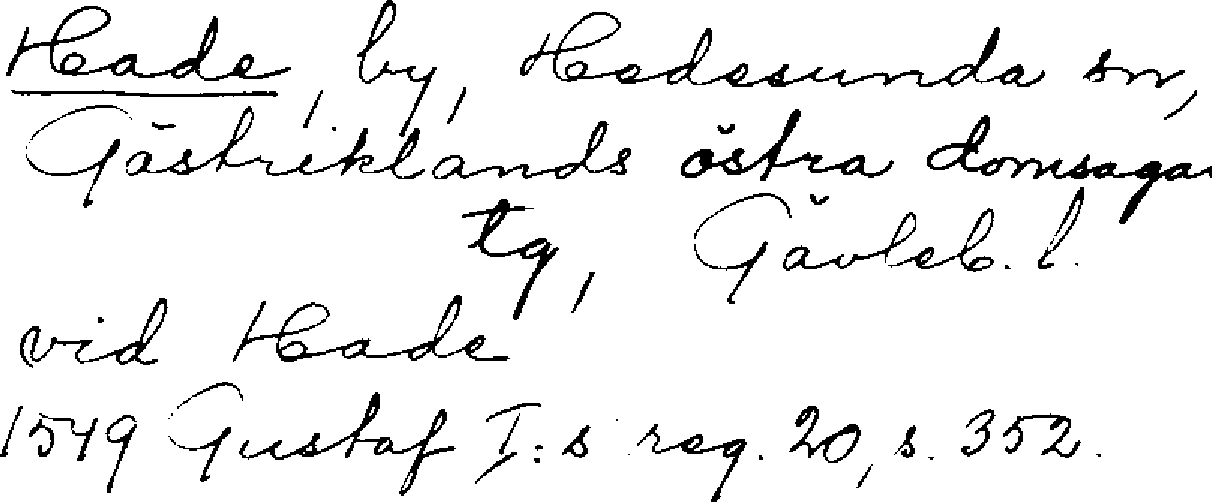 Hade, by, Hedesunda sn,
Gästriklands östra domsagas
tg, Gävleb. l.
vid Hade
1549 Gustaf I:s reg. 20, s. 352.